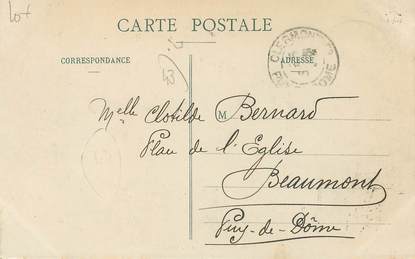 Lot
CARTE POSTALE
CORRESPONDANCE
ADRESSE
CLERMONT-FD
PUY DE DOME
Melle Clotilde M Bernard
Place de l'Eglise
Beaumont
Puy-de-Dôme